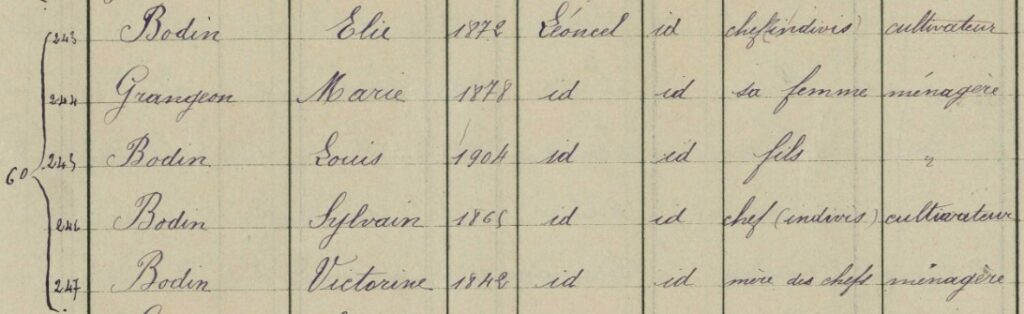 243 Bodin Elie 1872 Léoncel id chef (indivis) cultivateur
244 Grangeon Marie 1878 id id sa femme ménagère
60 245 Bodin Louis 1904 id id fils "
246 Bodin Sylvain 1865 id id chef (indivis) cultivateur
247 Bodin Victorine 1842 id id mère des chefs ménagère